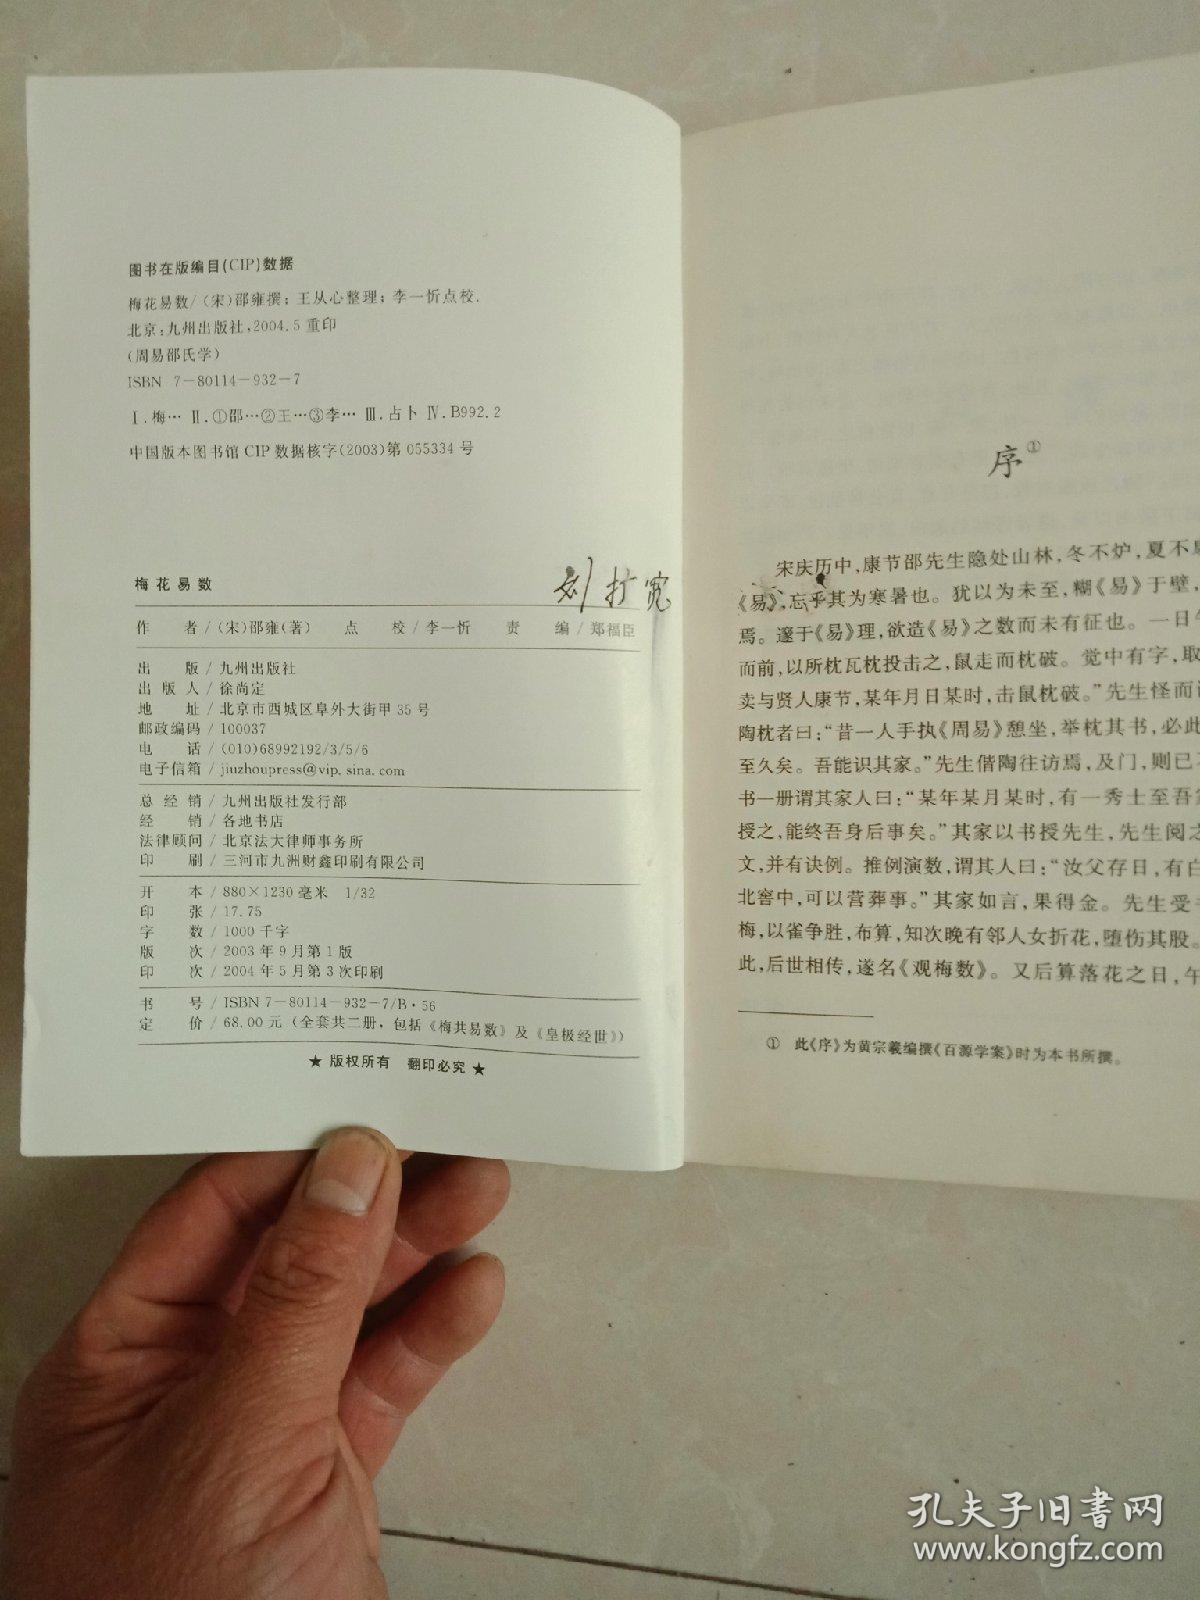 图书在版编目(CIP)数据
梅花易数/(宋)邵雍撰；王从心整理；李一忻点校.
北京:九州出版社,2004.5重印
(周易邵氏学)
ISBN 7-80114-932-7
Ⅰ.梅… Ⅱ.①邵…②王…③李… Ⅲ.占卜 Ⅳ.B992.2
中国版本图书馆CIP数据核字(2003)第055334号
梅花易数
作 者/(宋)邵雍(著) 点 校/李一忻 责 编/郑福臣
出 版/九州出版社
出 版 人/徐尚定
地 址/北京市西城区阜外大街甲35号
邮政编码/100037
电 话/(010)68992192/3/5/6
电子信箱/jiuzhoupress@vip.sina.com
总 经 销/九州出版社发行部
经 销/各地书店
法律顾问/北京法大律师事务所
印 刷/三河市九洲财鑫印刷有限公司
开 本/880×1230毫米 1/32
印 张/17.75
字 数/1000千字
版 次/2003年9月第1版
印 次/2004年5月第3次印刷
书 号/ISBN 7-80114-932-7/B·56
定 价/68.00元(全套共二册,包括《梅共易数》及《皇极经世》)
★版权所有 翻印必究★
序①
宋庆历中,康节邵先生隐处山林,冬不炉,夏不
《易》,忘乎其为寒暑也。犹以为未至,糊《易》于壁,
焉。邃于《易》理,欲造《易》之数而未有征也。一日
而前,以所枕瓦枕投击之,鼠走而枕破。觉中有字,取
卖与贤人康节,某年月日某时,击鼠枕破。”先生怪而
陶枕者曰:“昔一人手执《周易》憩坐,举枕其书,必此
至久矣。吾能识其家。”先生偕陶往访焉,及门,则已
书一册谓其家人曰:“某年某月某时,有一秀士至吾
授之,能终吾身后事矣。”其家以书授先生,先生阅之
文,并有诀例。推例演数,谓其人曰:“汝父存日,有白
北窖中,可以营葬事。”其家如言,果得金。先生受
梅,以雀争胜,布算,知次晚有邻人女折花,堕伤其股。
此,后世相传,遂名《观梅数》。又后算落花之日,午
① 此《序》为黄宗羲编撰《百源学案》时为本书所撰。
孔夫子旧书网
www.kongfz.com